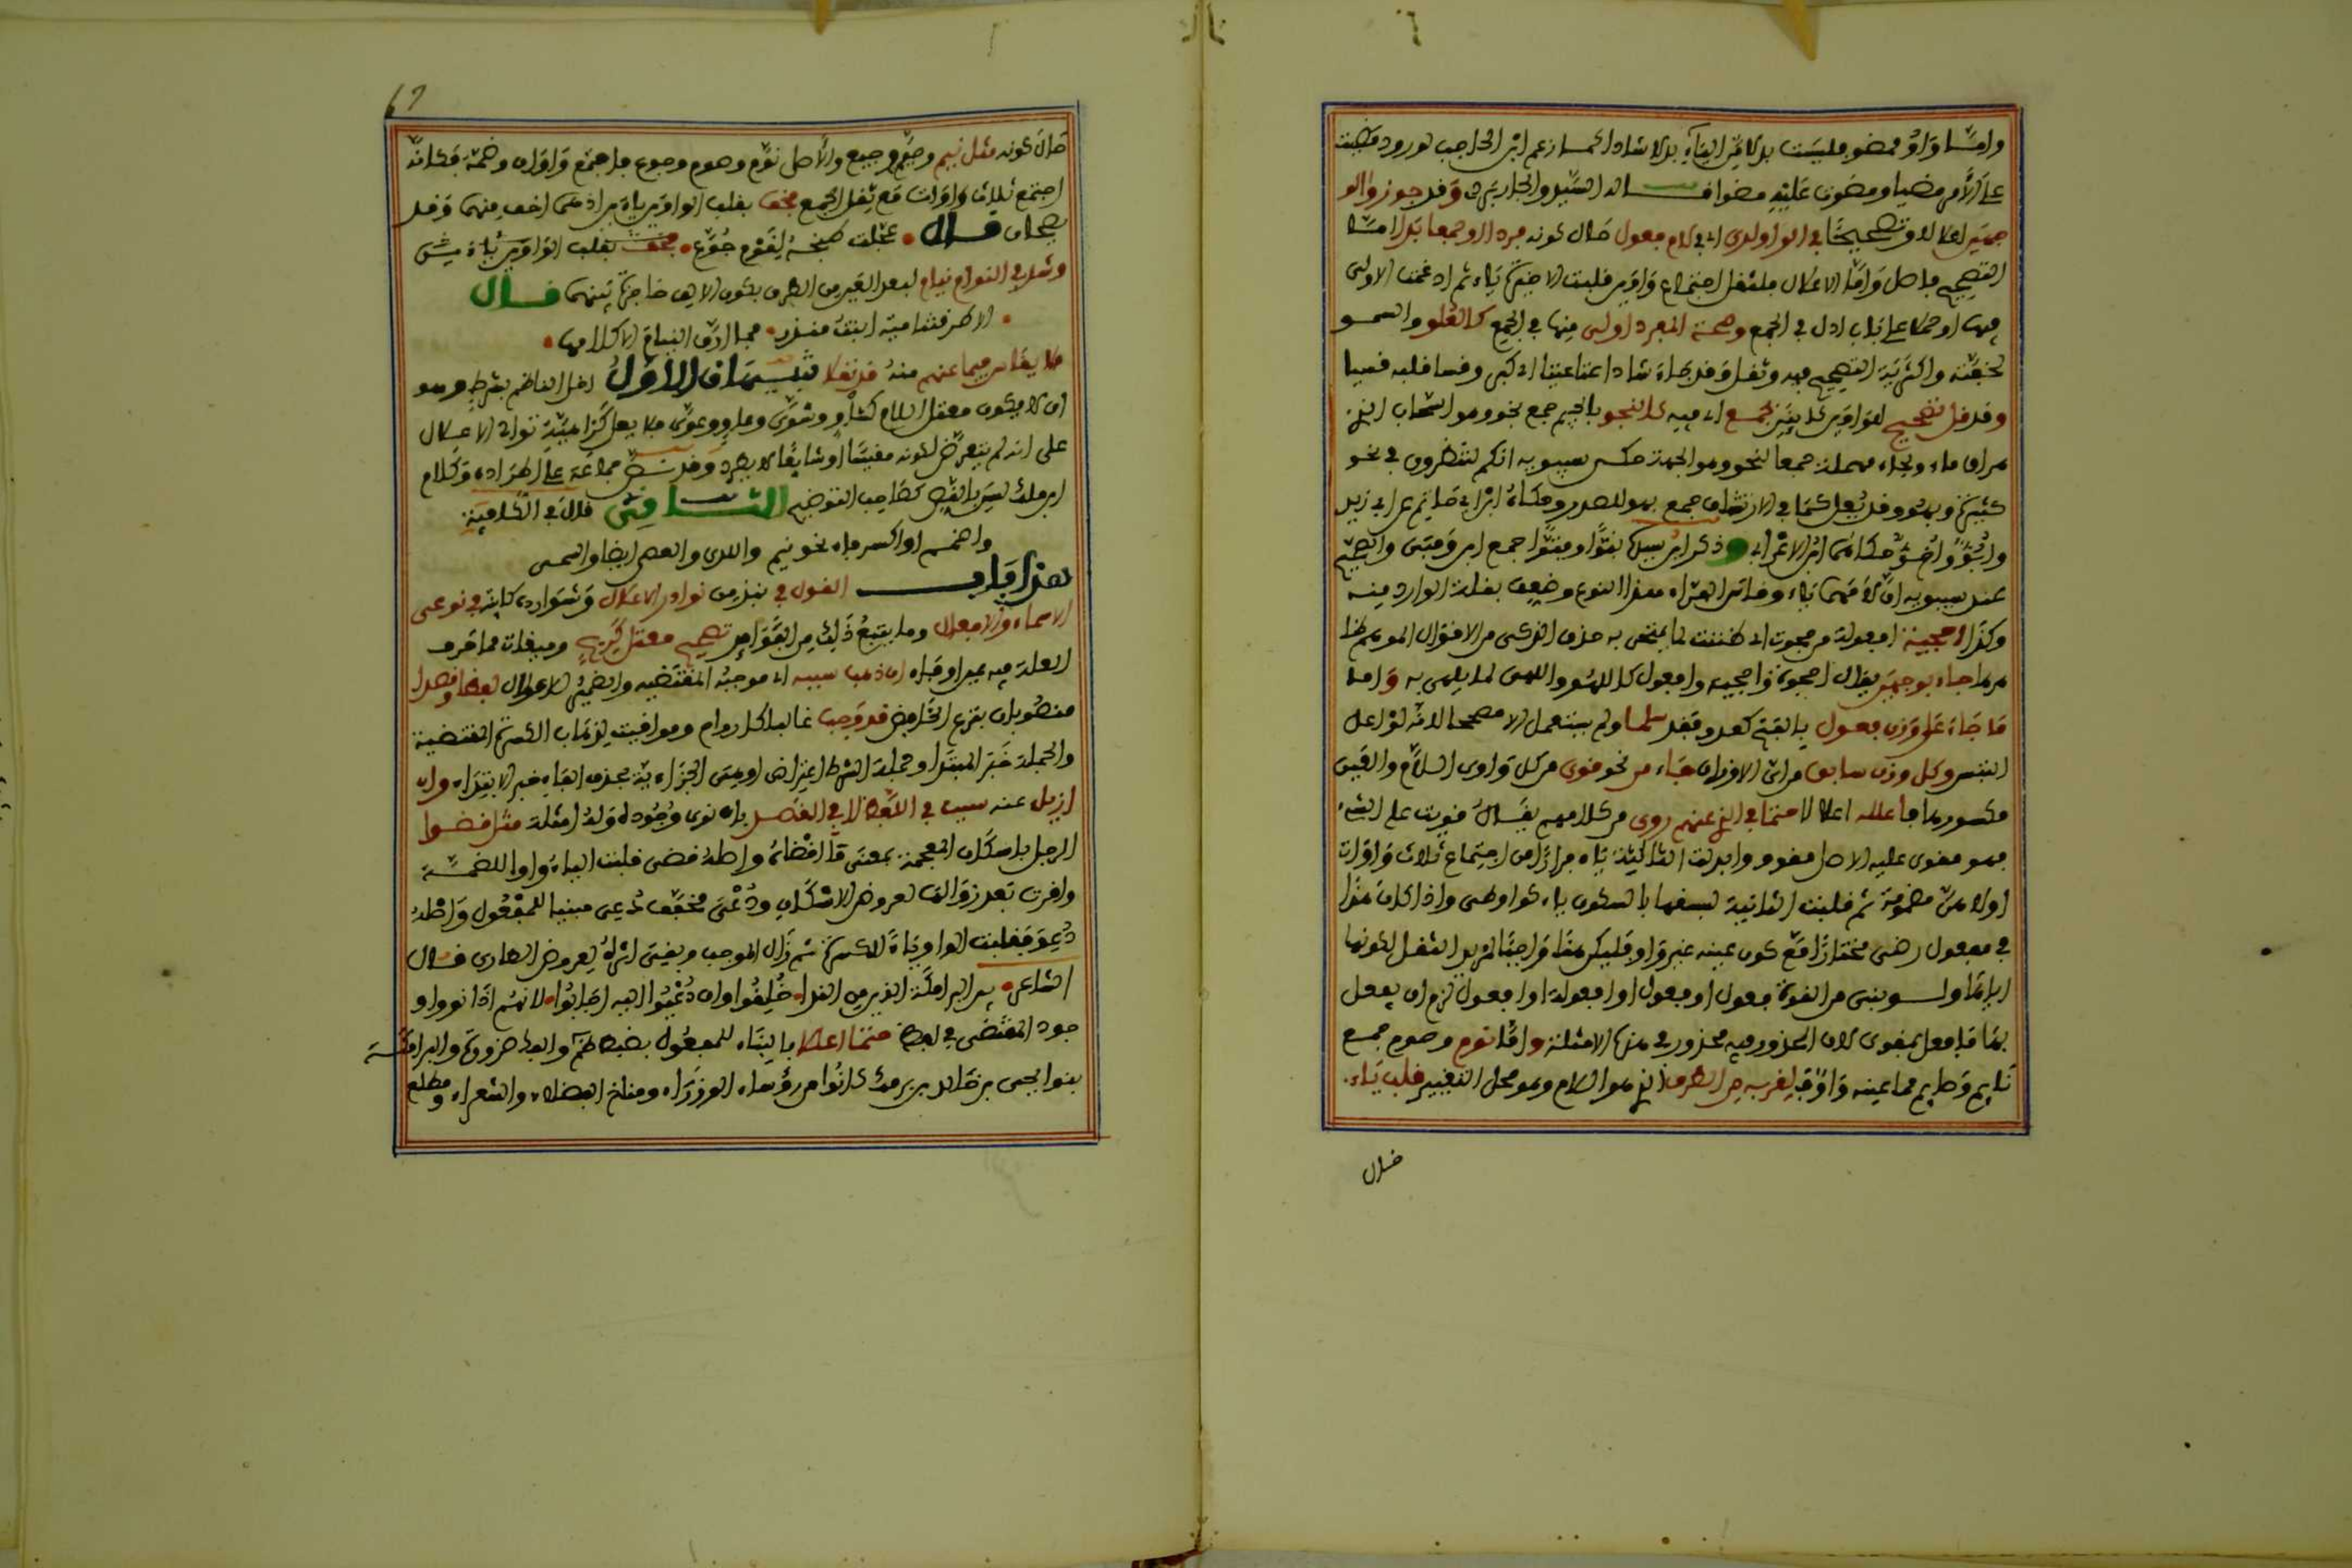 واما واو ممضو فليست بدلا من الياء بدلا شاذا كما زعم ابن الحاجب لورود مضيت
على الامر مضيا ومضوت عليه مضوا قاله السيد والجاربردي وقد جوزوا لو
جهين اعلالا وتصحيحا في الواو لدى اي في لام فعول حال كونه مفردا او جمعا بدا اما
التصحيح فاصل واما الاعلال فلثقل اجتماع واوين فقلبت الاخيرة ياء ثم ادغمت الاولى
فيها او حملا على باب ادل في الجمع وصحة المفرد اولى منها في الجمع كالعلو والسمو
لخفته واكثرية التصحيح فيه وثقل وقد جاء شاذا عتا عتيا اي كبر وقسا قلبه قسيا
وقد قل تصحيح الواوين كائن بجمع اي فيه كالنجو بالجيم جمع نجو وهو السحاب الذي
هراق ماءه وبحاء مهملة جمعا لنحو وهو الجهة حكى سيبويه انكم لتنظرون في نحو
كثيرة وبهو وقد يعل كما في الارتشاف جمع بهو للصدر وحكاه ابن ابي حاتم عن ابي زيد
وابو واخو حكاهما ابن الاعرابي وذكر ابن سيده بنوا وفتوا جمع ابن وفتى والصحيح
عند سيبويه ان لامهما ياء وقاس الفراء هذا النوع وضعف بقلة الوارد منه
وكذا احجية افعولة من حجوت اي ظننت لما يمتحن به حذق الذكي من الاقوال الموهم كذا
مما جاء بوجهين يقال احجوة واحجية وافعول كاللهو واللهى لما يلهى به واما
ما جاء على وزن فعول بالفتح كعدو فقد سلما ولم يستعمل الا مصححا لانه لو اعل
التبس وكل وزن سابق من اي الاوزان جاء من نحو قوي من كل واوي اللام والعين
مكسورها فاعلله اعلالا حتما في الذي عنهم روي من كلامهم يقال قويت على الشيء
فهو مقوى عليه الاصل مقووو وابدلت الثالثة ياء فرارا من اجتماع ثلاث واوات
اولاهن مضمومة ثم قلبت الثانية لسبقها بالسكون ياء كواو طي واذا كان هذا
في مفعول رضي مختارا مع كون عينه غير واو فليكن هذا واجبا لمزيد الثقل لكونها
اياها ولو بني من القوة فعول او فعول او افعولة او افعول لزم ان يفعل
بها ما فعل بمقوى لان المحذور فيه محذور في هذه الامثلة واما نوم وصوم جمع
نايم وصايم مما عينه واو فلقربه من الطرف الذي هو اللام وهو محل التغيير قلب ياء
حال
67
حال كونه مثل نيم وصيم وجيع والاصل نوم وصوم وجوع فاجتمع واوان وضمة فكانه
اجتمع ثلاث واوات مع ثقل الجمع فخفف بقلب الواوين ياءين اذ هي اخف منها وقد
يصححان قال • عجلت طبخه لقوم جوع • مخفف بقلب الواوين ياء يشى
وشذ في النوام نيام لبعد العين من الطرف بكون الالف حاجزة بينهما قال
• الا طرقتنا مية ابنة منذر • فما ارق النيام الا كلامها •
فلا يقاس فيما عنهم منه قد نقلا تنبيهان الاول اخل الناظم بشرط وهو
ان لا يكون معتل اللام كشاو وشوى وعاو وعوى فلا يعل كراهية توالي الاعلال
على انه لم يتعرض لكونه مقيسا او شايعا لا يطرد وقد نص جماعة على اطراده وكلام
ابن مالك ليس بالنص كصاحب التوضيح الثاني قال في الكافية
واضمم او اكسر فاء نحو نيم واللي والعصي ايضا والسمي
هذا باب القول في نبذ من نوادر الاعلال وشوارده كاينة في نوعي
الاسماء والافعال وما يتبع ذلك من القوام تصحيح معتل وبيقات مما حرف
العلة فيه عين او فاء ان ذهب سببه اي موجبه المقتضيه والضمير للاعلال لفظا وقصدا
منصوبان بنزع الخافض قد وجب غالبا كل روام وموافيت لذهاب الكسرة المقتضية
والجملة خبر المبتدا وجملة الشرط اعتراض او هي الجزاء بحذف الفاء خبر الابتداء وان
ازيل عنه سبب في اللفظ لا في القصد بان نوي وجوده وله امثلة مثل قضوا
الرجل باسكان المعجمة بمعنى ما اقضاه واصله قضى قلبت الياء واوا للضمة
واقرت بعد زوالها لعروض الاسكان ودعي مخفف دعي مبنيا للمفعول واصله
دعو فقلبت الواو ياء للكسرة ثم زال الموجب وبقي اثره لعروض الطاري قال
الشاعر • بنو البرامكة الذين من الندا • خلقوا وان دعيوا اليه اجابوا • لانهم اذا نووا و
جود المقتضي في لفظه حتما اعلا بالبناء للمفعول بضبطهم والفا ضرورة والبرامكة
بنوا يحيى بن خالد بن برمك كانوا من رؤساء الوزراء ومناخ الفضلاء والشعراء ومطلع